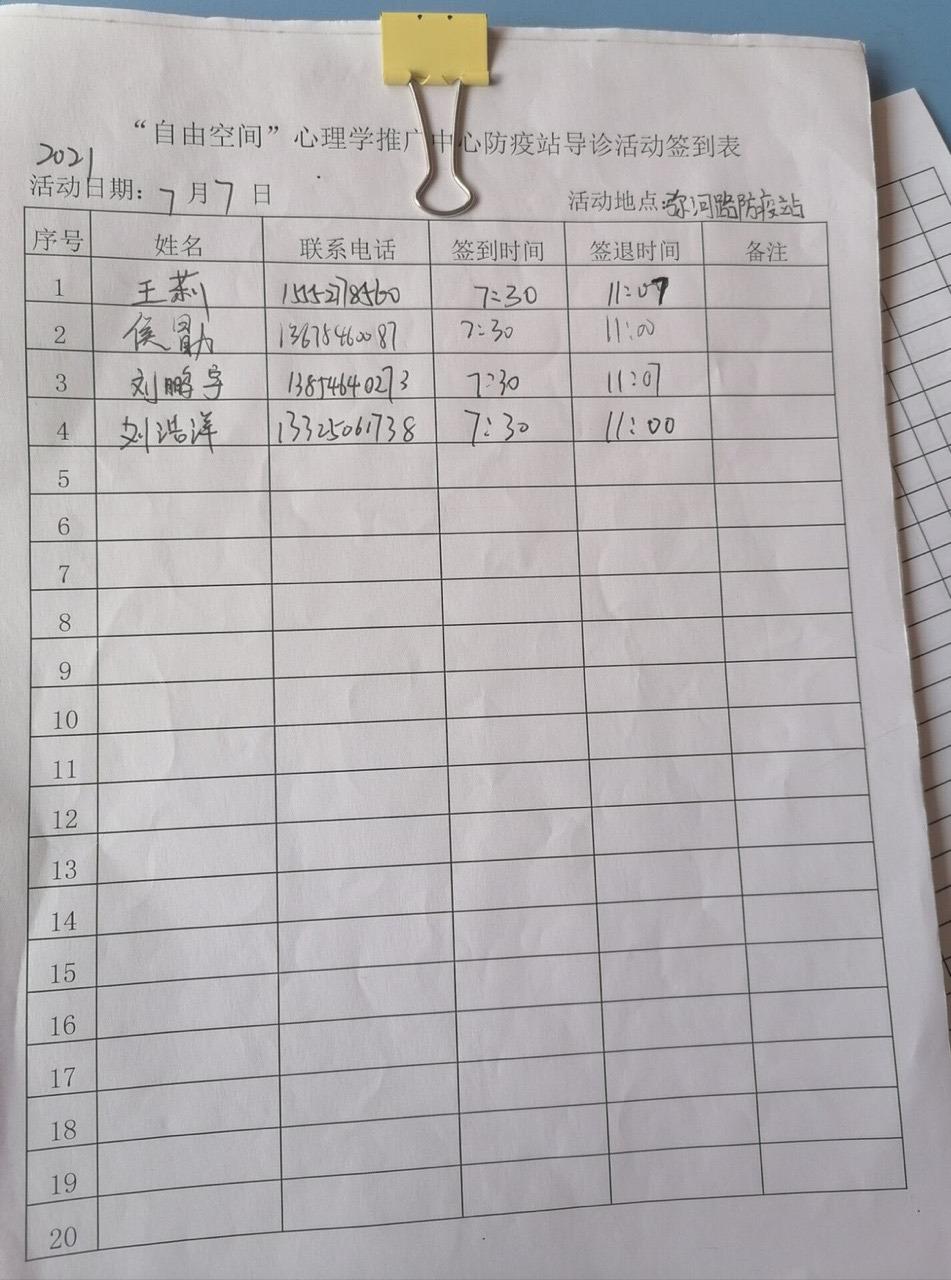 “自由空间”心理学推广中心防疫站导诊活动签到表
2021
活动日期：7月7日 活动地点：弥河路防疫站
序号 姓名 联系电话 签到时间 签退时间 备注
1 王莉 15552778560 7:30 11:07
2 侯勖 13675460087 7:30 11:00
3 刘鹏宇 13854640273 7:30 11:07
4 刘浩洋 13325061738 7:30 11:00
5
6
7
8
9
10
11
12
13
14
15
16
17
18
19
20